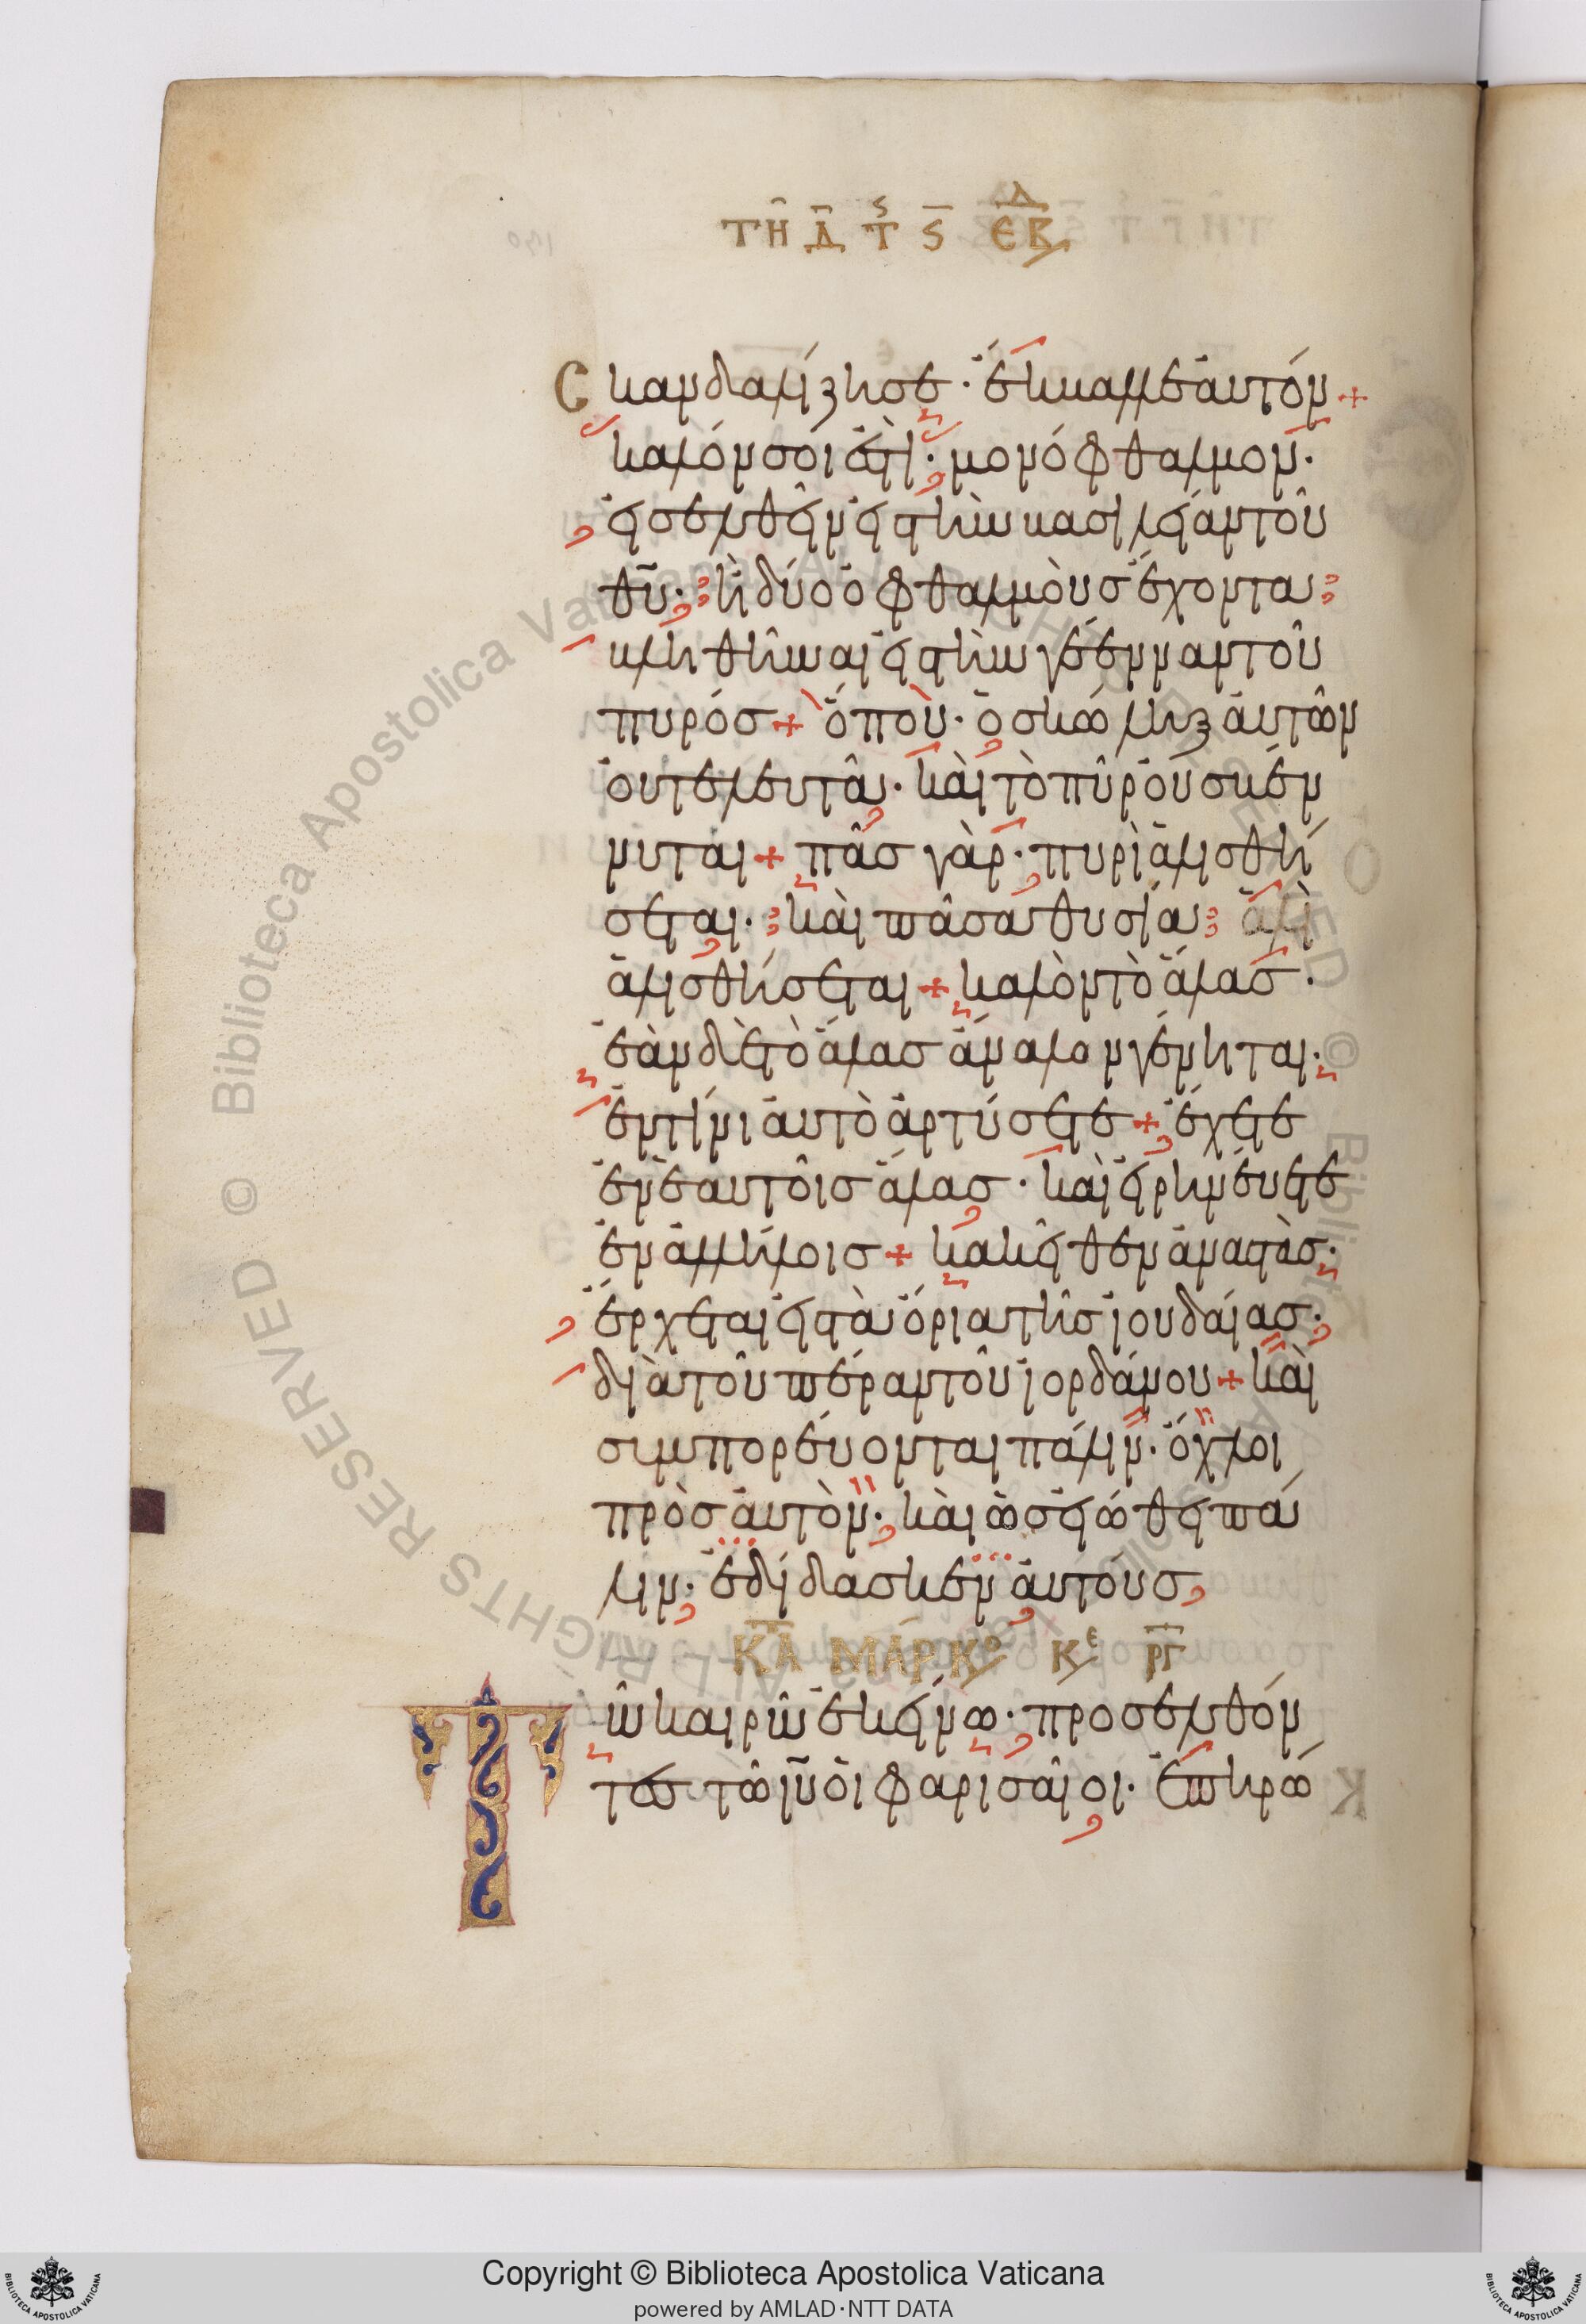 ΤΗ Δ Τ Ϛ ΕΒΔ
Σκανδαλίζη σε· ἔκβαλλε ἀυτόν+
καλόν σόι ἐστὶ· μονόφθαλμον·
ἐισελθεῖν ἐις τὴν βασιλείαν τοῦ
θῦ· ἢ δύο ὀφθαλμὸυς ἔχοντα
βληθῆναι ἐις τὴν γέενναν τοῦ
πυρός+ ὅπου· ὁ σκώληξ ἀυτῶν
ὀυ τελευτᾶ· κὰι τὸ πῦρ ὀυ σβέν
νυται+ πᾶς γὰρ· πυρὶ ἁλισθή
σεται· κὰι πᾶσα θυσία ἁλὶ
ἁλισθήσεται+ καλὸν τὸ ἅλας·
ἐὰν δὲ τὸ ἅλας ἄναλον γένηται·
ἐν τίνι ἀυτὸ ἀρτύσετε+ ἔχετε
ἐν ἑαυτοῖς ἅλας· κὰι ἐιρηνέυετε
ἐν ἀλλήλοις+ κακεῖθεν ἀναστὰς·
ἔρχεται ἐις τὰ ὅρια τῆς ἰουδάιας·
διὰ τοῦ πέραν τοῦ ἰορδάνου+ κὰι
συμπορέυονται πάλιν· ὄχλοι
πρὸς ἀυτὸν· κὰι ὡς ἐιώθει πά
λιν· ἐδίδασκεν ἀυτόυς
ΚΤΑ ΜΑΡΚΟ ΚΕ ΡΓ
Τῶ καιρῶ ἐκείνω· προσελθόν
τες τῶ ἰῦ ὁι φαρισᾶιοι· ἐπηρώ
Copyright © Biblioteca Apostolica Vaticana
powered by AMLAD·NTT DATA
BIBLIOTECA APOSTOLICA VATICANA
BIBLIOTECA APOSTOLICA VATICANA
© Biblioteca Apostolica Vaticana ALL RIGHTS RESERVED